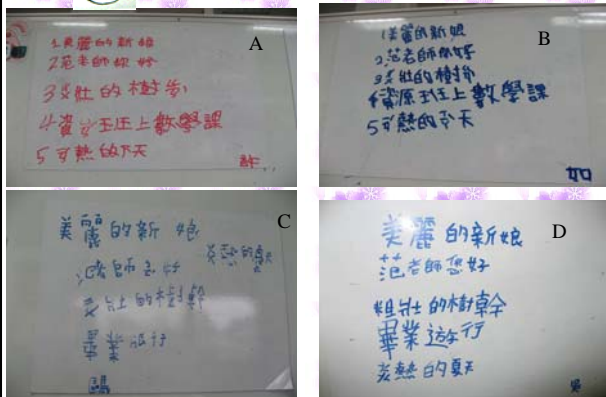 A
1美麗的新娘
2范老師你好
3 壯的樹
4資 班上數學課
5 熱的 天
許
B
1美麗的新娘
2范老師你好
3 壯的樹
4資源班上數學課
5 熱的 天
如
C
美麗的新娘
老師您好
炎熱的夏天
壯的樹幹
畢業旅行
D
美麗的新娘
范老師您好
粗壯的樹幹
畢業遊行
炎熱的夏天